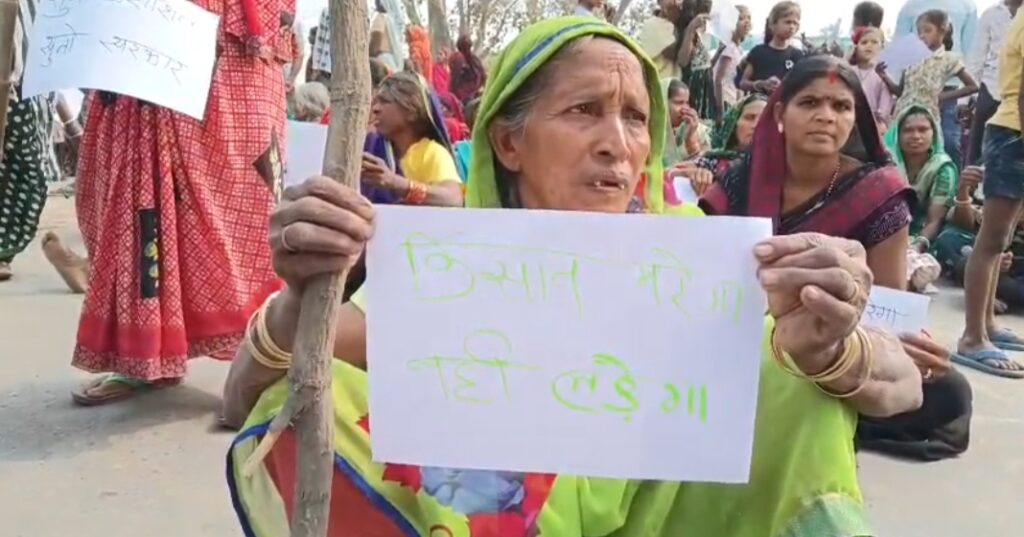 सुनो सरकार
किसान मरेगा
नही लड़ेगा
रेगा